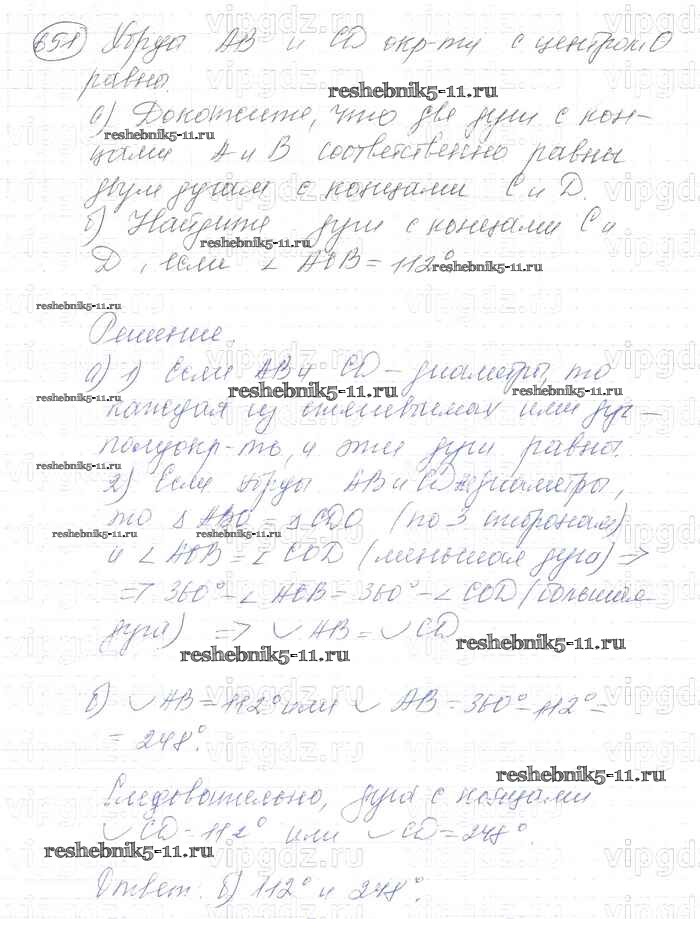 651 Хорды AB и CD окр-ти с центром O
равны.
reshebnik5-11.ru
а) Докажите, что две дуги с кон-
reshebnik5-11.ru
цами A и B соответственно равны
двум дугам с концами C и D.
б) Найдите дуги с концами C и
reshebnik5-11.ru
D, если ∠ AOB = 112°
reshebnik5-11.ru
reshebnik5-11.ru
Решение.
а) 1) Если AB и CD - диаметры, то
reshebnik5-11.ru
reshebnik5-11.ru
reshebnik5-11.ru
каждая из стягиваемых ими дуг -
полуокр-ть, и эти дуги равны.
reshebnik5-11.ru
2) Если хорды AB и CD не диаметры,
то Δ ABO = Δ CDO (по 3 сторонам)
reshebnik5-11.ru
reshebnik5-11.ru
и ∠ AOB = ∠ COD (меньшая дуга) =>
=> 360° - ∠ AOB = 360° - ∠ COD (большая
дуга) => ◡ AB = ◡ CD
reshebnik5-11.ru
reshebnik5-11.ru
б) ◡ AB = 112° или ◡ AB = 360° - 112° =
= 248°.
reshebnik5-11.ru
Следовательно, дуга с концами
◡ CD - 112° или ◡ CD = 248°.
reshebnik5-11.ru
Ответ: б) 112° и 248°.
vipgdz.ru